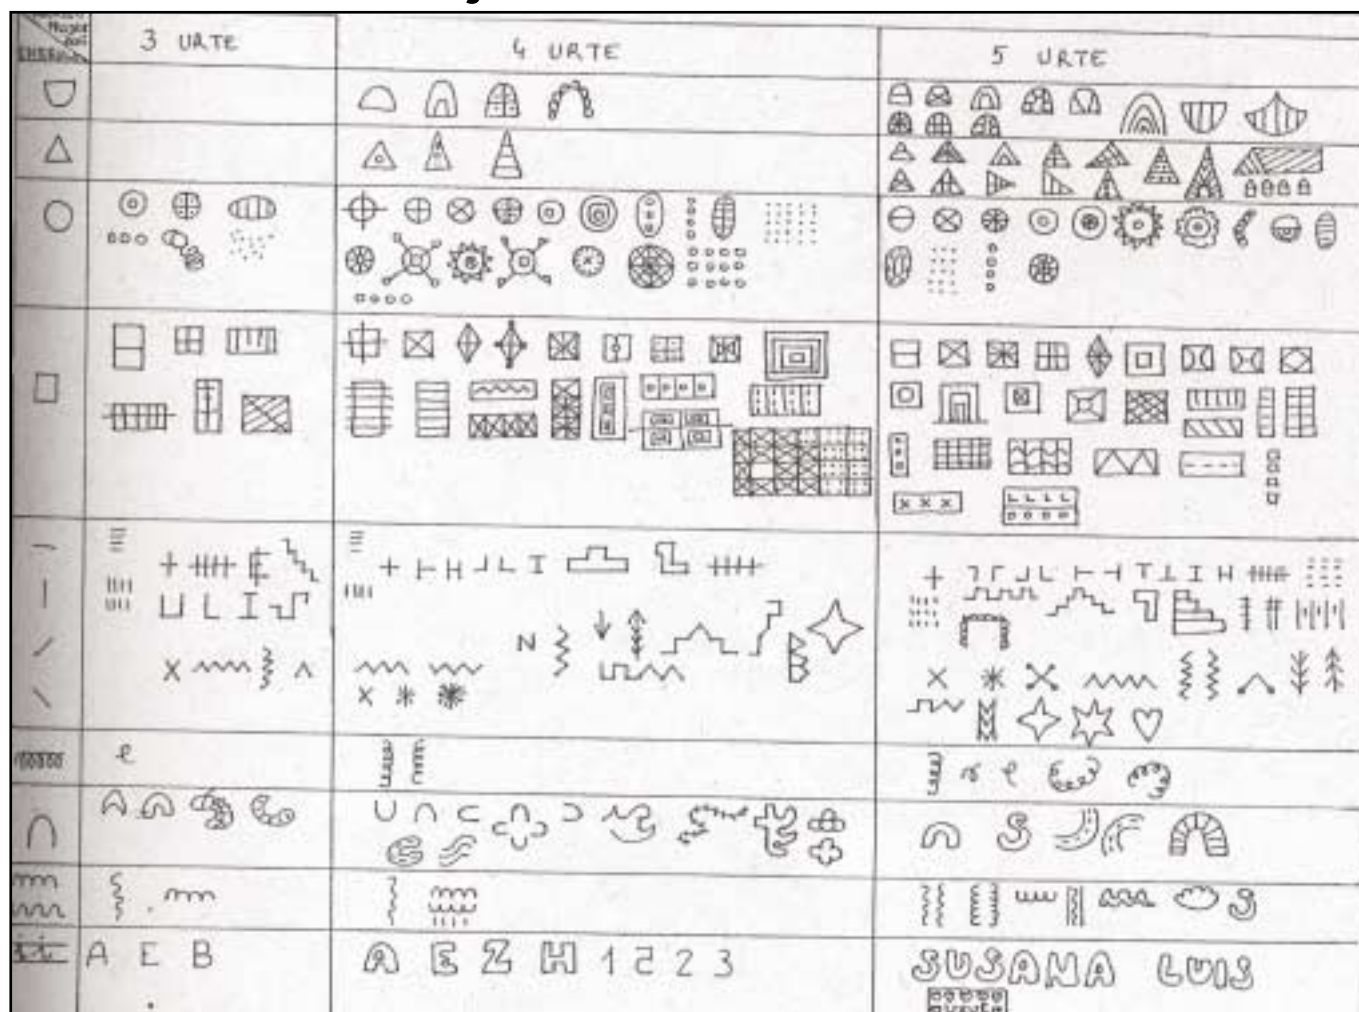 3 URTE
4 URTE
5 URTE
A E B
A E Z H 1 2 2 3
SUSANA LUIS